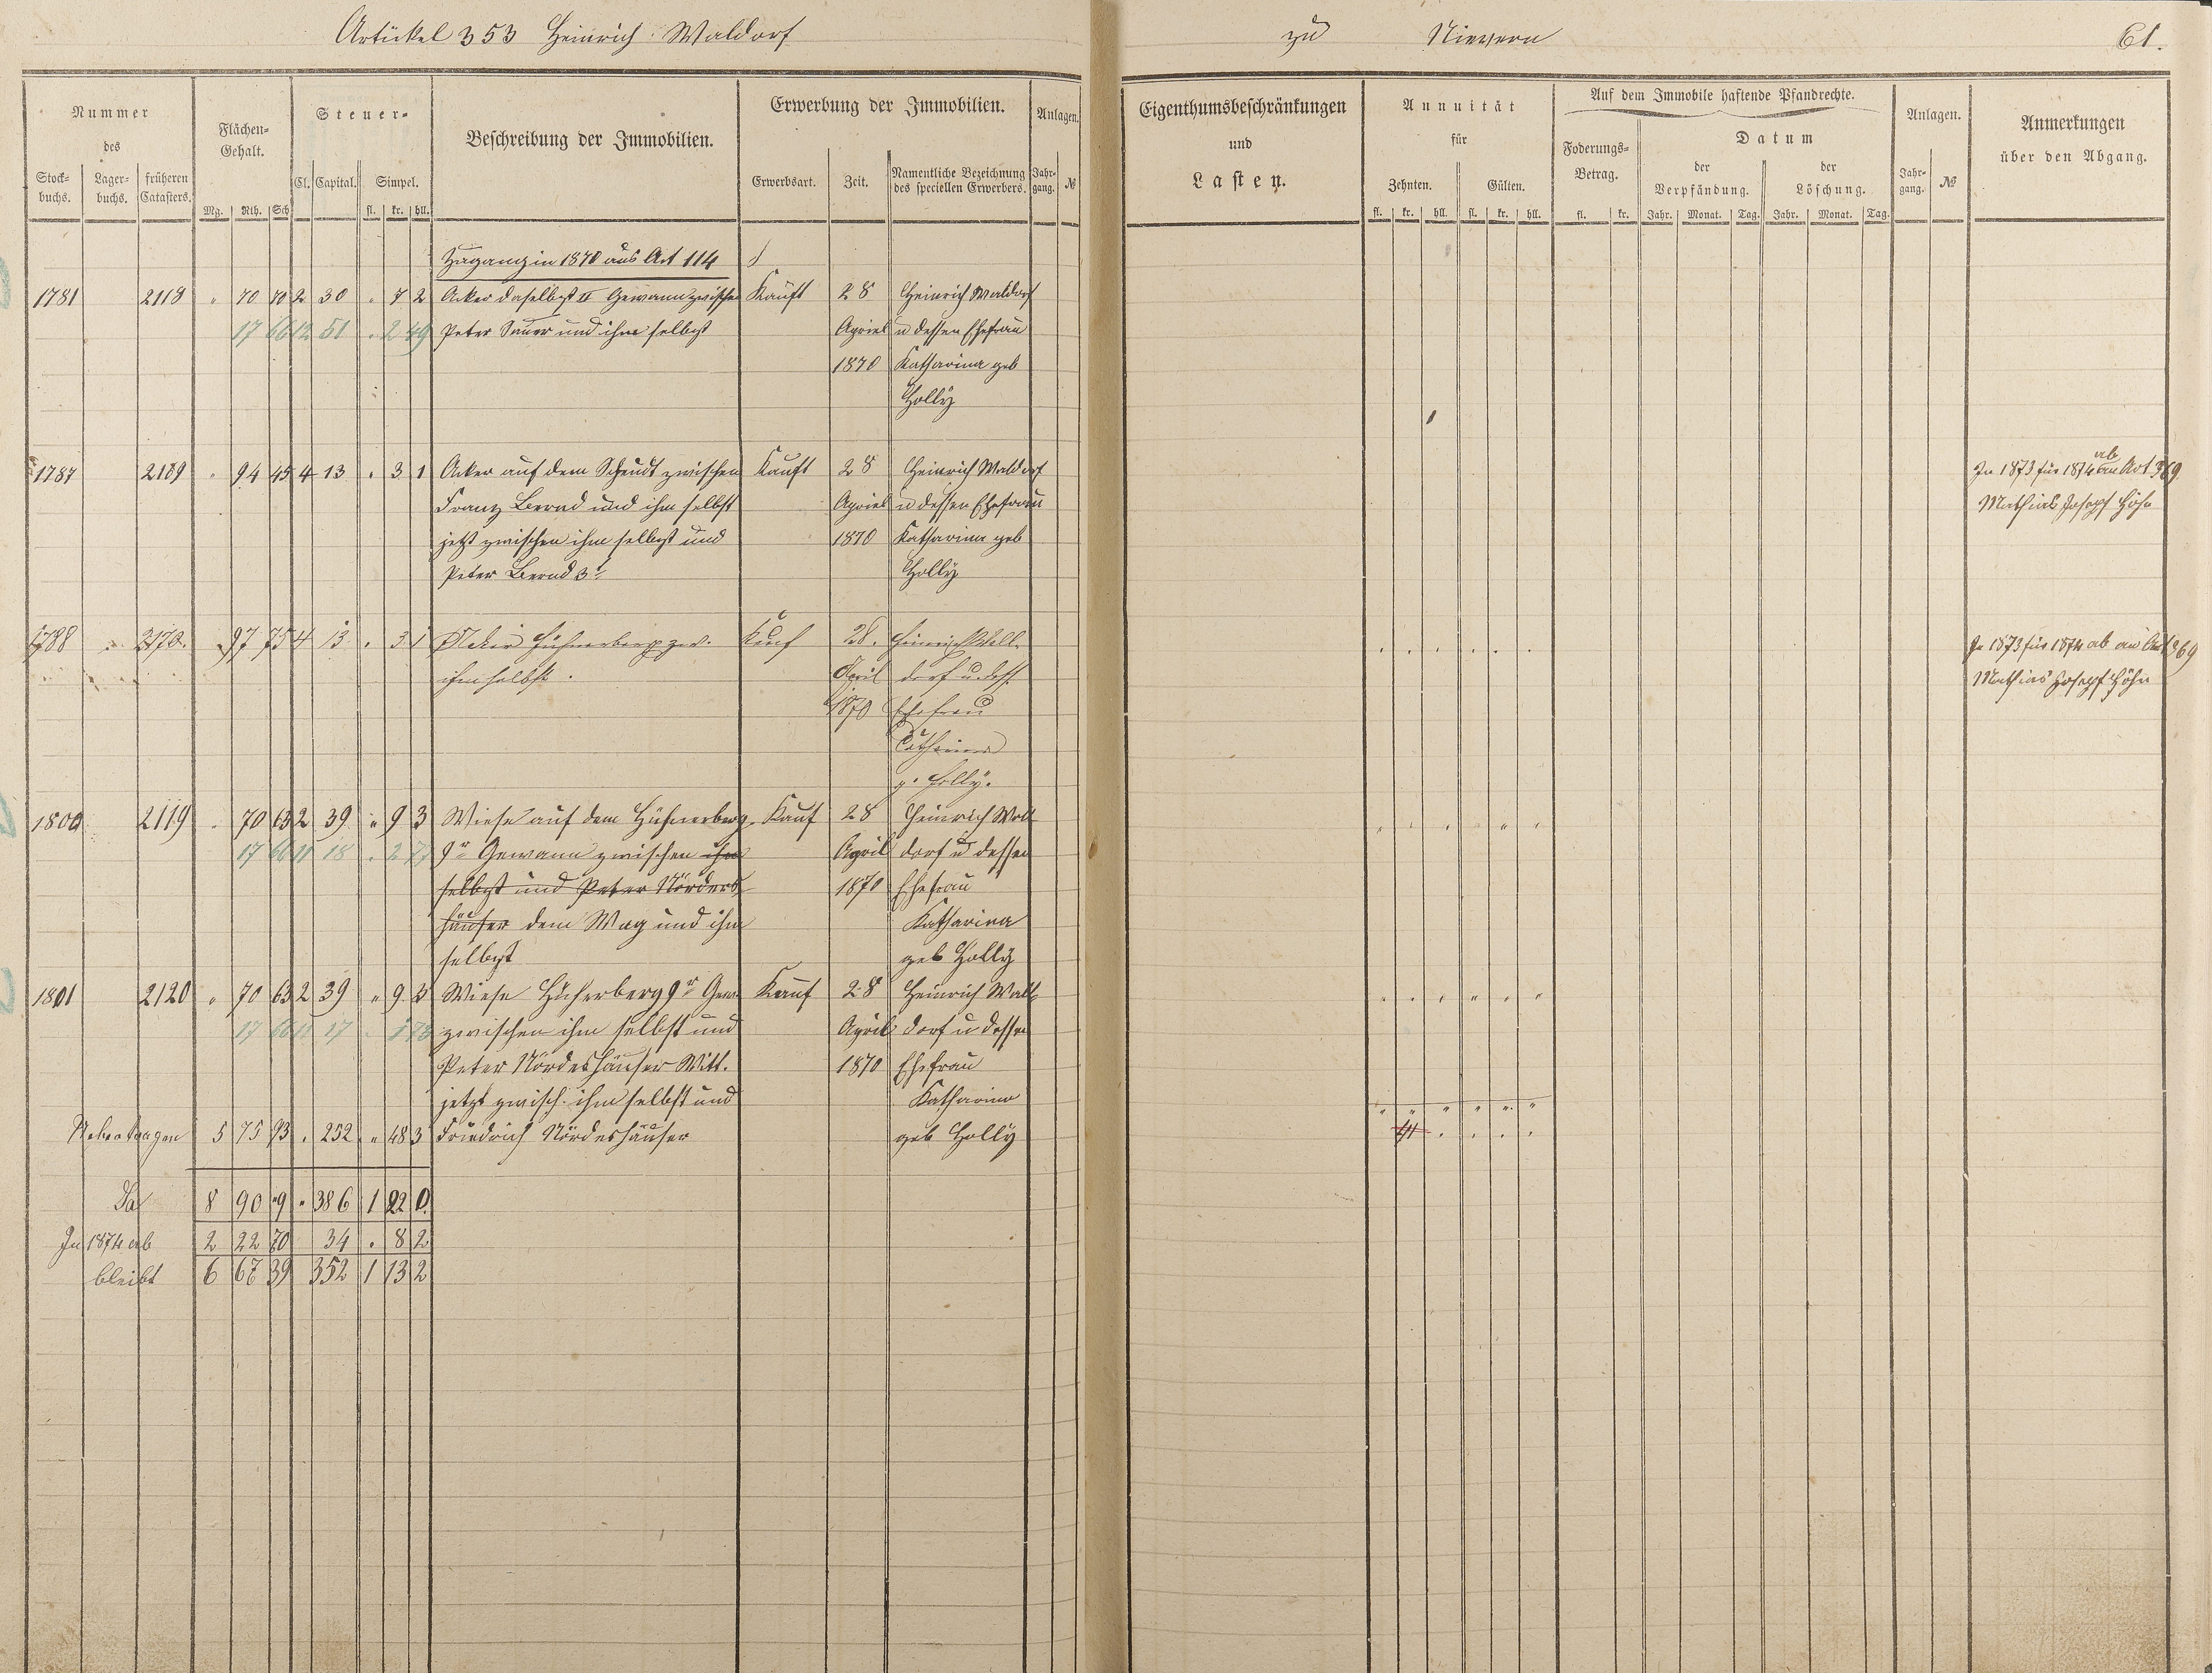 Artikel 353 Heinrich Waldorf zu Nievern 61.
Nummer des
Stock-buchs. Lager-buchs. früheren Catasters.
Flächen-Gehalt.
Mg. Rth. Sch
Steuer-
Cl. Capital. Simpel.
fl. kr. hll.
Beschreibung der Immobilien.
Erwerbung der Immobilien.
Erwerbsart. Zeit. Namentliche Bezeichnung des speciellen Erwerbers.
Anlagen.
Jahr-gang. №
Eigenthumsbeschränkungen und Lasten.
Annuität für
Zehnten. Gülten.
fl. kr. hll. fl. kr. hll.
Auf dem Immobile haftende Pfandrechte.
Foderungs-Betrag.
fl. kr.
Datum
der Verpfändung. der Löschung.
Jahr. Monat. Tag. Jahr. Monat. Tag.
Anlagen.
Jahr-gang. №
Anmerkungen über den Abgang.
Zugang in 1870 aus Art 114
1781 2118 " 70 70 2 30 " 7 2 Acker daselbst II Gewann zwischen Kauft 28 Heinrich Waldorf
17 66 12 51 . 2 49 Peter Sauer und ihm selbst Apriel u dessen Ehefrau
1870 Katharina geb
Holly
1787 2169 " 94 45 4 13 " 3 1 Acker auf dem Scheudt zwischen Kauft 28 Heinrich Waldorf In 1873 für 1874 ab an Art 369
Franz Bernd und ihm selbst Apriel u dessen Ehefrau Mathias Josepf Höhn
jetzt zwischen ihm selbst und 1870 Katharina geb
Peter Bernd 3t Holly
1788 2170. 97 75 4 13 . 3 1 Acker Hühnerberg zw. Kauf 28. Heinrich Wall- In 1873 für 1874 ab an Art 369
ihm selbst. April dorf u. dess. Mathias Josepf Höhn
1870 Ehefrau
Catharina
g. Holly.
1800 2119 " 70 63 2 39 " 9 3 Wiese auf dem Hühnerberg Kauf 28 Heinrich Wall
17 66 11 18 . 2 77 9r Gewann zwischen ihm April dorf u dessen
selbst und Peter Nörders 1870 Ehefrau
häuser dem Weg und ihm Katharina
selbst geb Holly
1801 2120 " 70 63 2 39 " 9 3 Wiese Hüherberg 9r Gew. Kauf 28 Heinrich Wall
17 66 11 17 zwischen ihm selbst und April dorf u dessen
Peter Nördeshäuser Witt. 1870 Ehefrau
jetzt zwisch. ihm selbst und Katharina
5 75 93 . 252 " 48 3 Friedrich Nördeshäuser geb Holly
Sa 8 90 9 " 386 1 22 0
In 1874 ab 2 22 70 34 . 8 2
bleibt 6 67 39 352 1 13 2